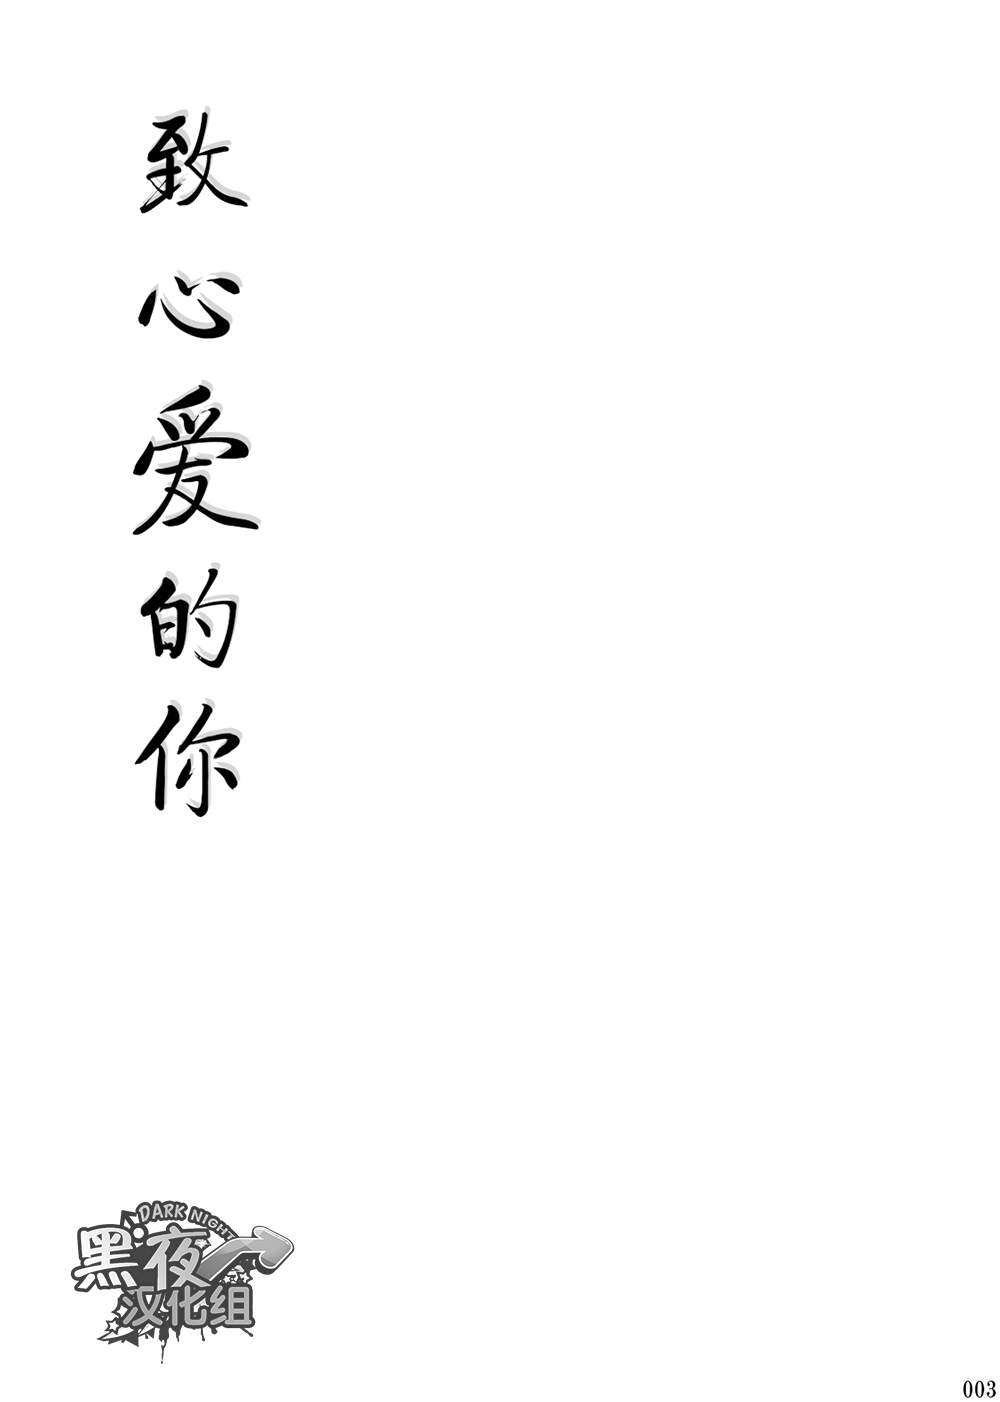 致心爱的你
DARK NIGHT
黑夜
汉化组
003